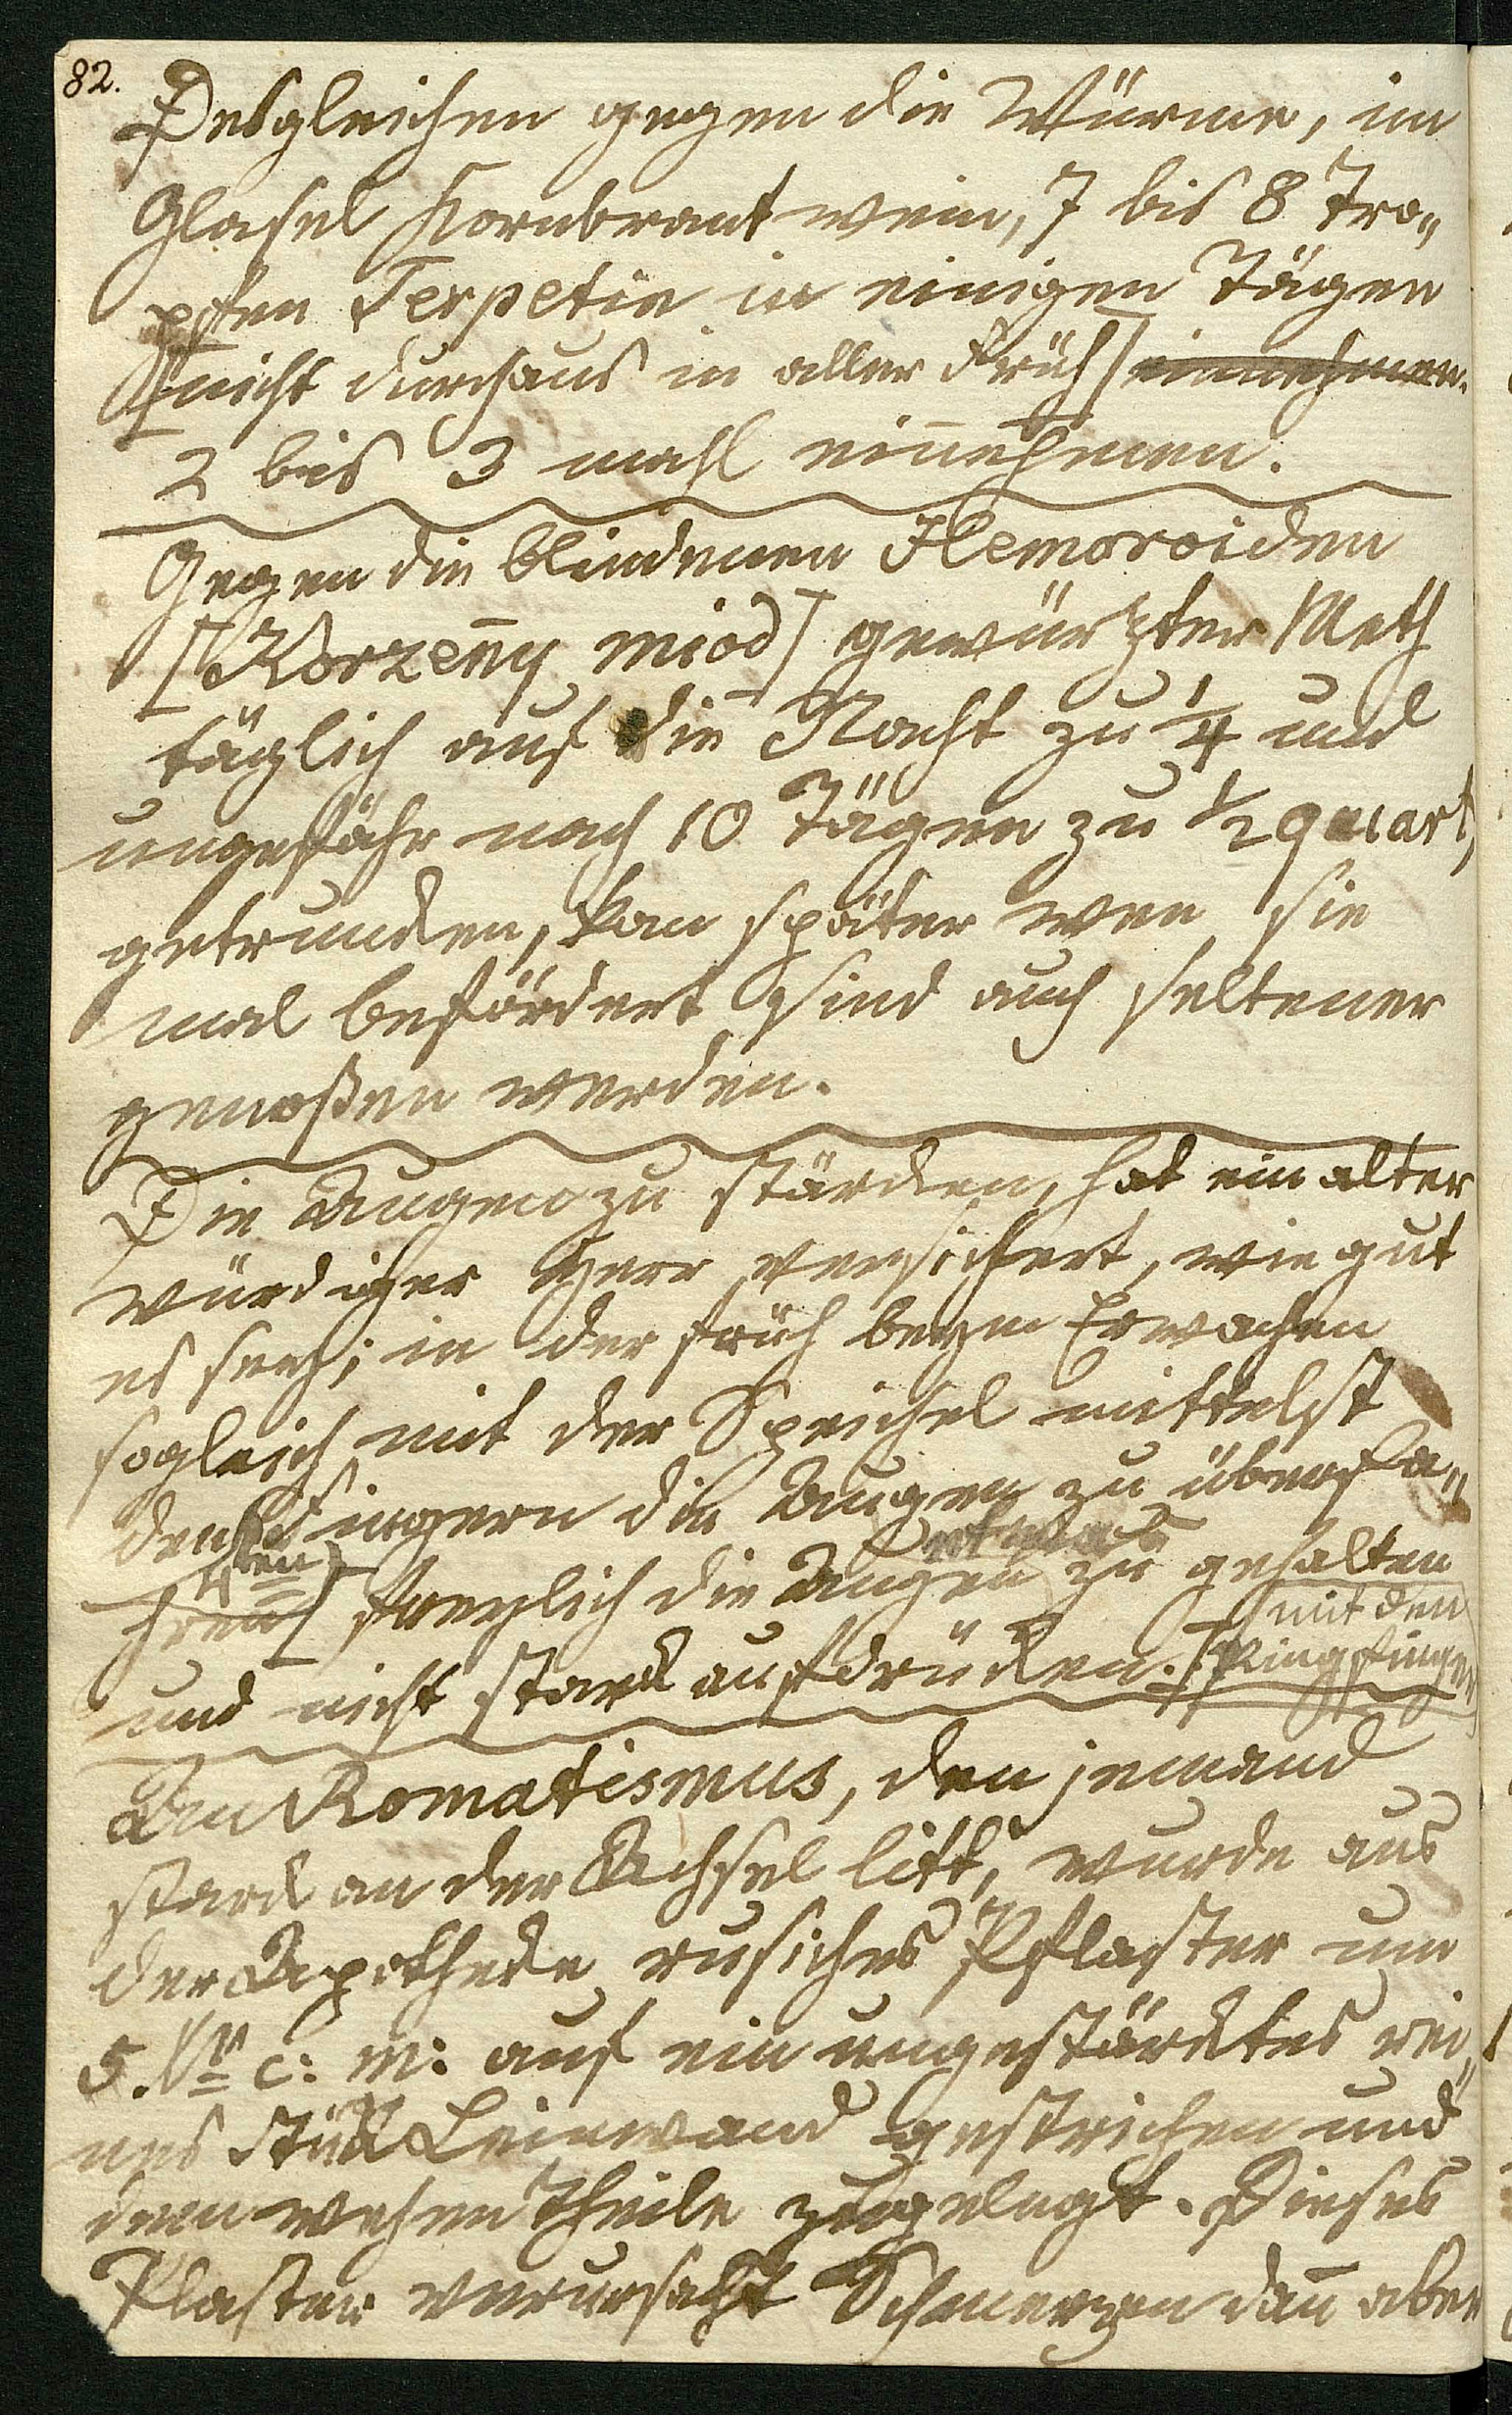 82.
Desgleichen gegen die Würmer, im
Glasel Kornbrantwein, 7 bis 8 Tro„
pfen Terpetin in einigen Tägen
[nicht durchaus in aller Früh] einnehmen.
2 bis 3 mahl ein̄ehmen.
Gegen die blindenen Hemoroiden
[Korzen̄y miod] gewürzter Meth
täglich auf die Nacht zu 1/4 und
ungefähr nach 10 Tägen zu 1/2 quart,
getrunken, kan später wen sie
mal befördert sind auch seltener
genoßen werden.
Die Augen zu stärken, hat ein alter
würdiger Herr versichert, wie gut
es seÿ; in der früh beym Erwachen
sogleich mit der Speichel mittelst
den Fingern die Augen zu überfa„
hren freylich die Augen zu gehalten
4ten
und nicht stark aufdrücken. [mit den
Ringfinger]
Am Romatismus, den jemand
stark an der Achsel litt, wurde aus
der Apotheke rusiches Pflaster um
5. Xr c: m: auf ein ungestärktes rei„
nes Stük Leinwand gestrichen und
dem wehen Theile zugelegt. Dieses
Plaster verursacht Schmerzen dan̄ aber